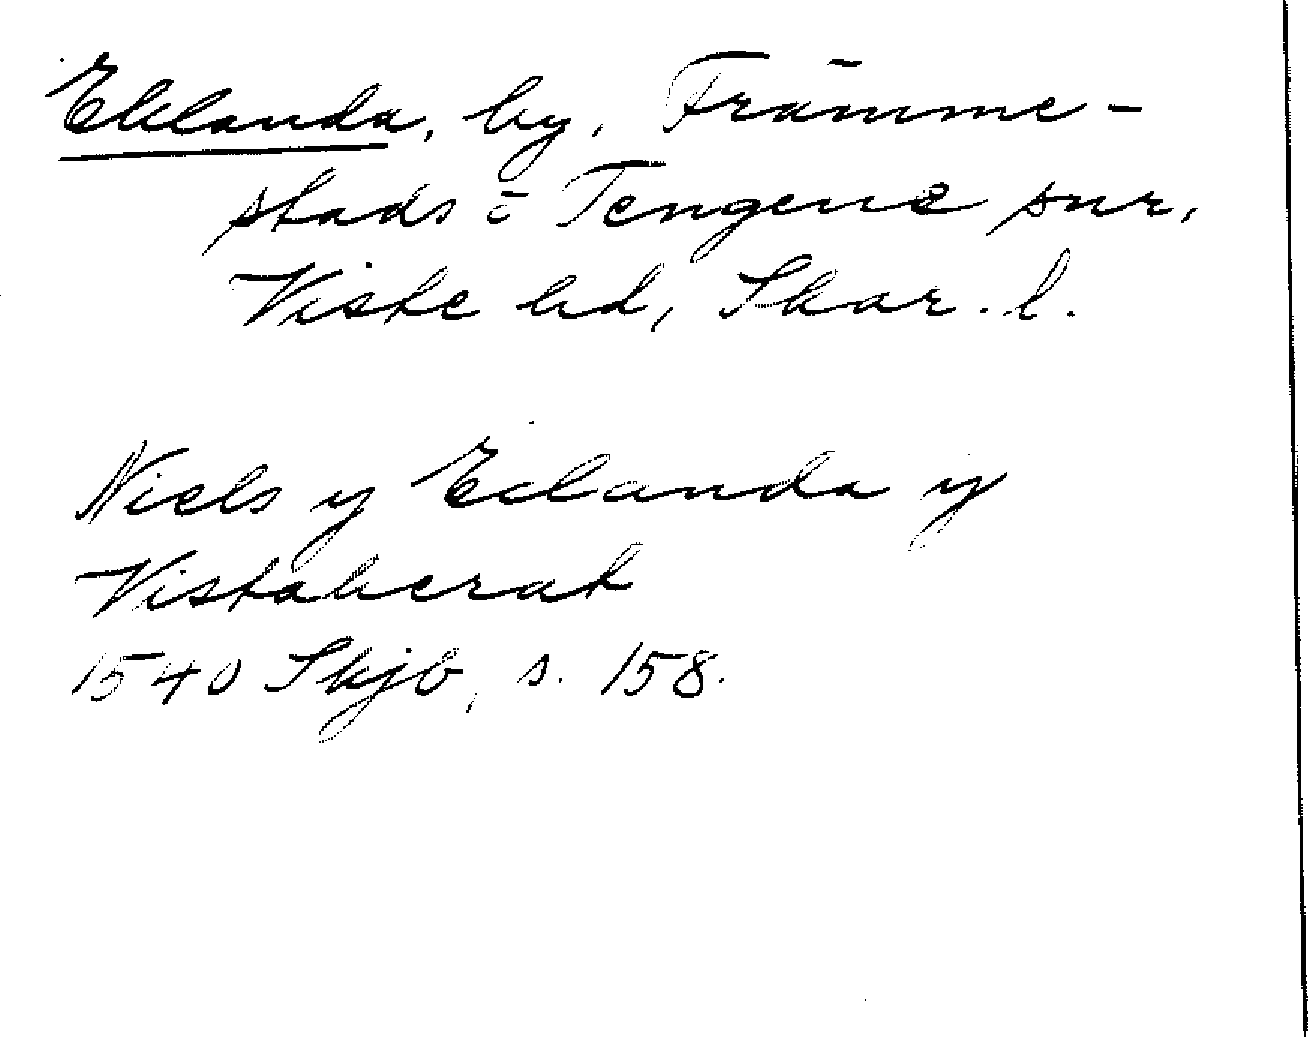 Eklanda, by, Främme-
stads o Tengene snr,
Viste hd, Skar. l.
Niels y Eclanda y
Vistaherat
1540 Skjb, s. 158.